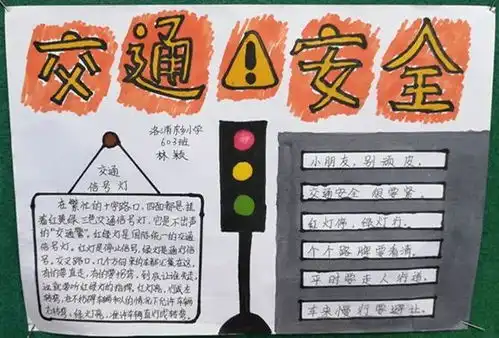 交通安全
洛浦东乡小学
603班
林颖
交通
信号灯
在繁忙的十字路口，四面都悬挂
着红黄绿三色交通信号灯，它是不出声
的“交通警”。红绿灯是国际统一的交通
信号灯。红灯是停止信号，绿灯是通行信
号。交叉路口，几个方向来的车都汇集在这，
有的要直走，有的要拐弯，到底让谁先走，
这就要听红绿灯的指挥。红灯亮，
转弯，在不碍
左转弯，绿灯亮，准许车辆直行或转弯。
小朋友，别顽皮，
交通安全很要紧。
红灯停，绿灯行。
个个路牌要看清。
平时要走人行道，
车来慢行要避让。